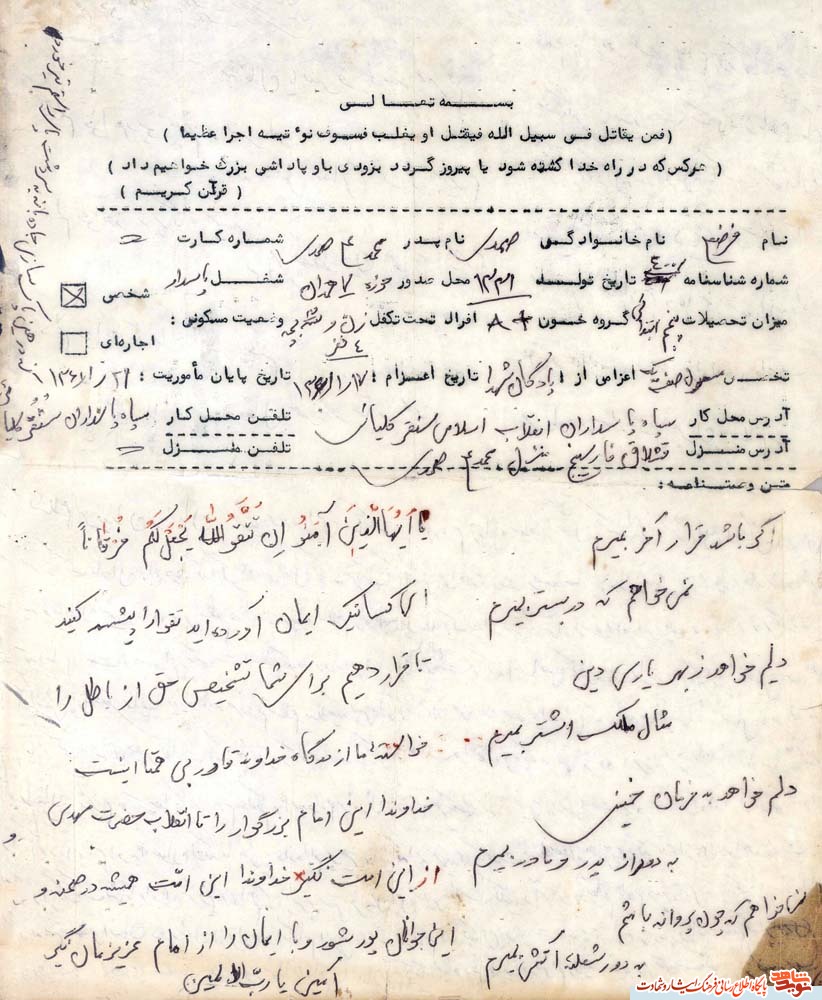 بسمه تعالی
(فمن یقاتل فی سبیل الله فیقتل او یغلب فسوف نوٴتیه اجرا عظیما )
( هرکس که در راه خدا کشته شود یا پیروز گردد بزودی باو پاداشی بزرگ خواهیم داد )
( قرآن کریم )
نام نام خانوادگی صمدی نام پدر محمدع صمدی شماره کارت =
شماره شناسنامه تاریخ تولد ۱۳۳۱ محل صدور حوزه ۷ همدان شغل پاسدار
میزان تحصیلات پنجم ابتدائی گروه خون A+ افراد تحت تکفل زن و بچه ۴ نفر وضعیت مسکونی :
شخصی
اجاره‌ای
تخصص مسئول اعزامی از : پادگان شهدا تاریخ اعزام : تاریخ پایان مأموریت :
آدرس محل کار سپاه پاسداران انقلاب اسلامی سنقر کلیائی تلفن محل کار سپاه پاسداران سنقر کلیائی
آدرس منزل قشلاق فارسینج منزل محمدع صمدی تلفن منزل =
متن وصیتنامه :
یا اَیُّهَا الَّذینَ آمَنُوا اِن تَتَّقُوا اللهَ یَجْعَل لَکُم فُرقاناً
ای کسانیکه ایمان آورده اید تقوا را پیشه کنید
تا قرار دهیم برای شما تشخیص حق از باطل را
خواسته ما از درگاه خداوند قادر بی همتا اینست
خداوندا این امام بزرگوار را تا انقلاب حضرت مهدی
از این امت نگیر خداوندا این امت همیشه در صحنه و
این جوانان پور شور و با ایمان را از امام عزیزمان نگیر
آمین یا ربّ العالمین
اگر باشد قرار آخر بمیرم
نمی خواهم که در بستر بمیرم
دلم خواهد ز بهر یاری دین
مثال ملک اشتر بمیرم
دلم خواهد به فرمان خمینی
به دور از پدر و مادر بمیرم
خواهم که چون پروانه باشم
به دور شعله آتش بمیرم
نوید شاهد
پایگاه اطلاع رسانی فرهنگ ایثار و شهادت